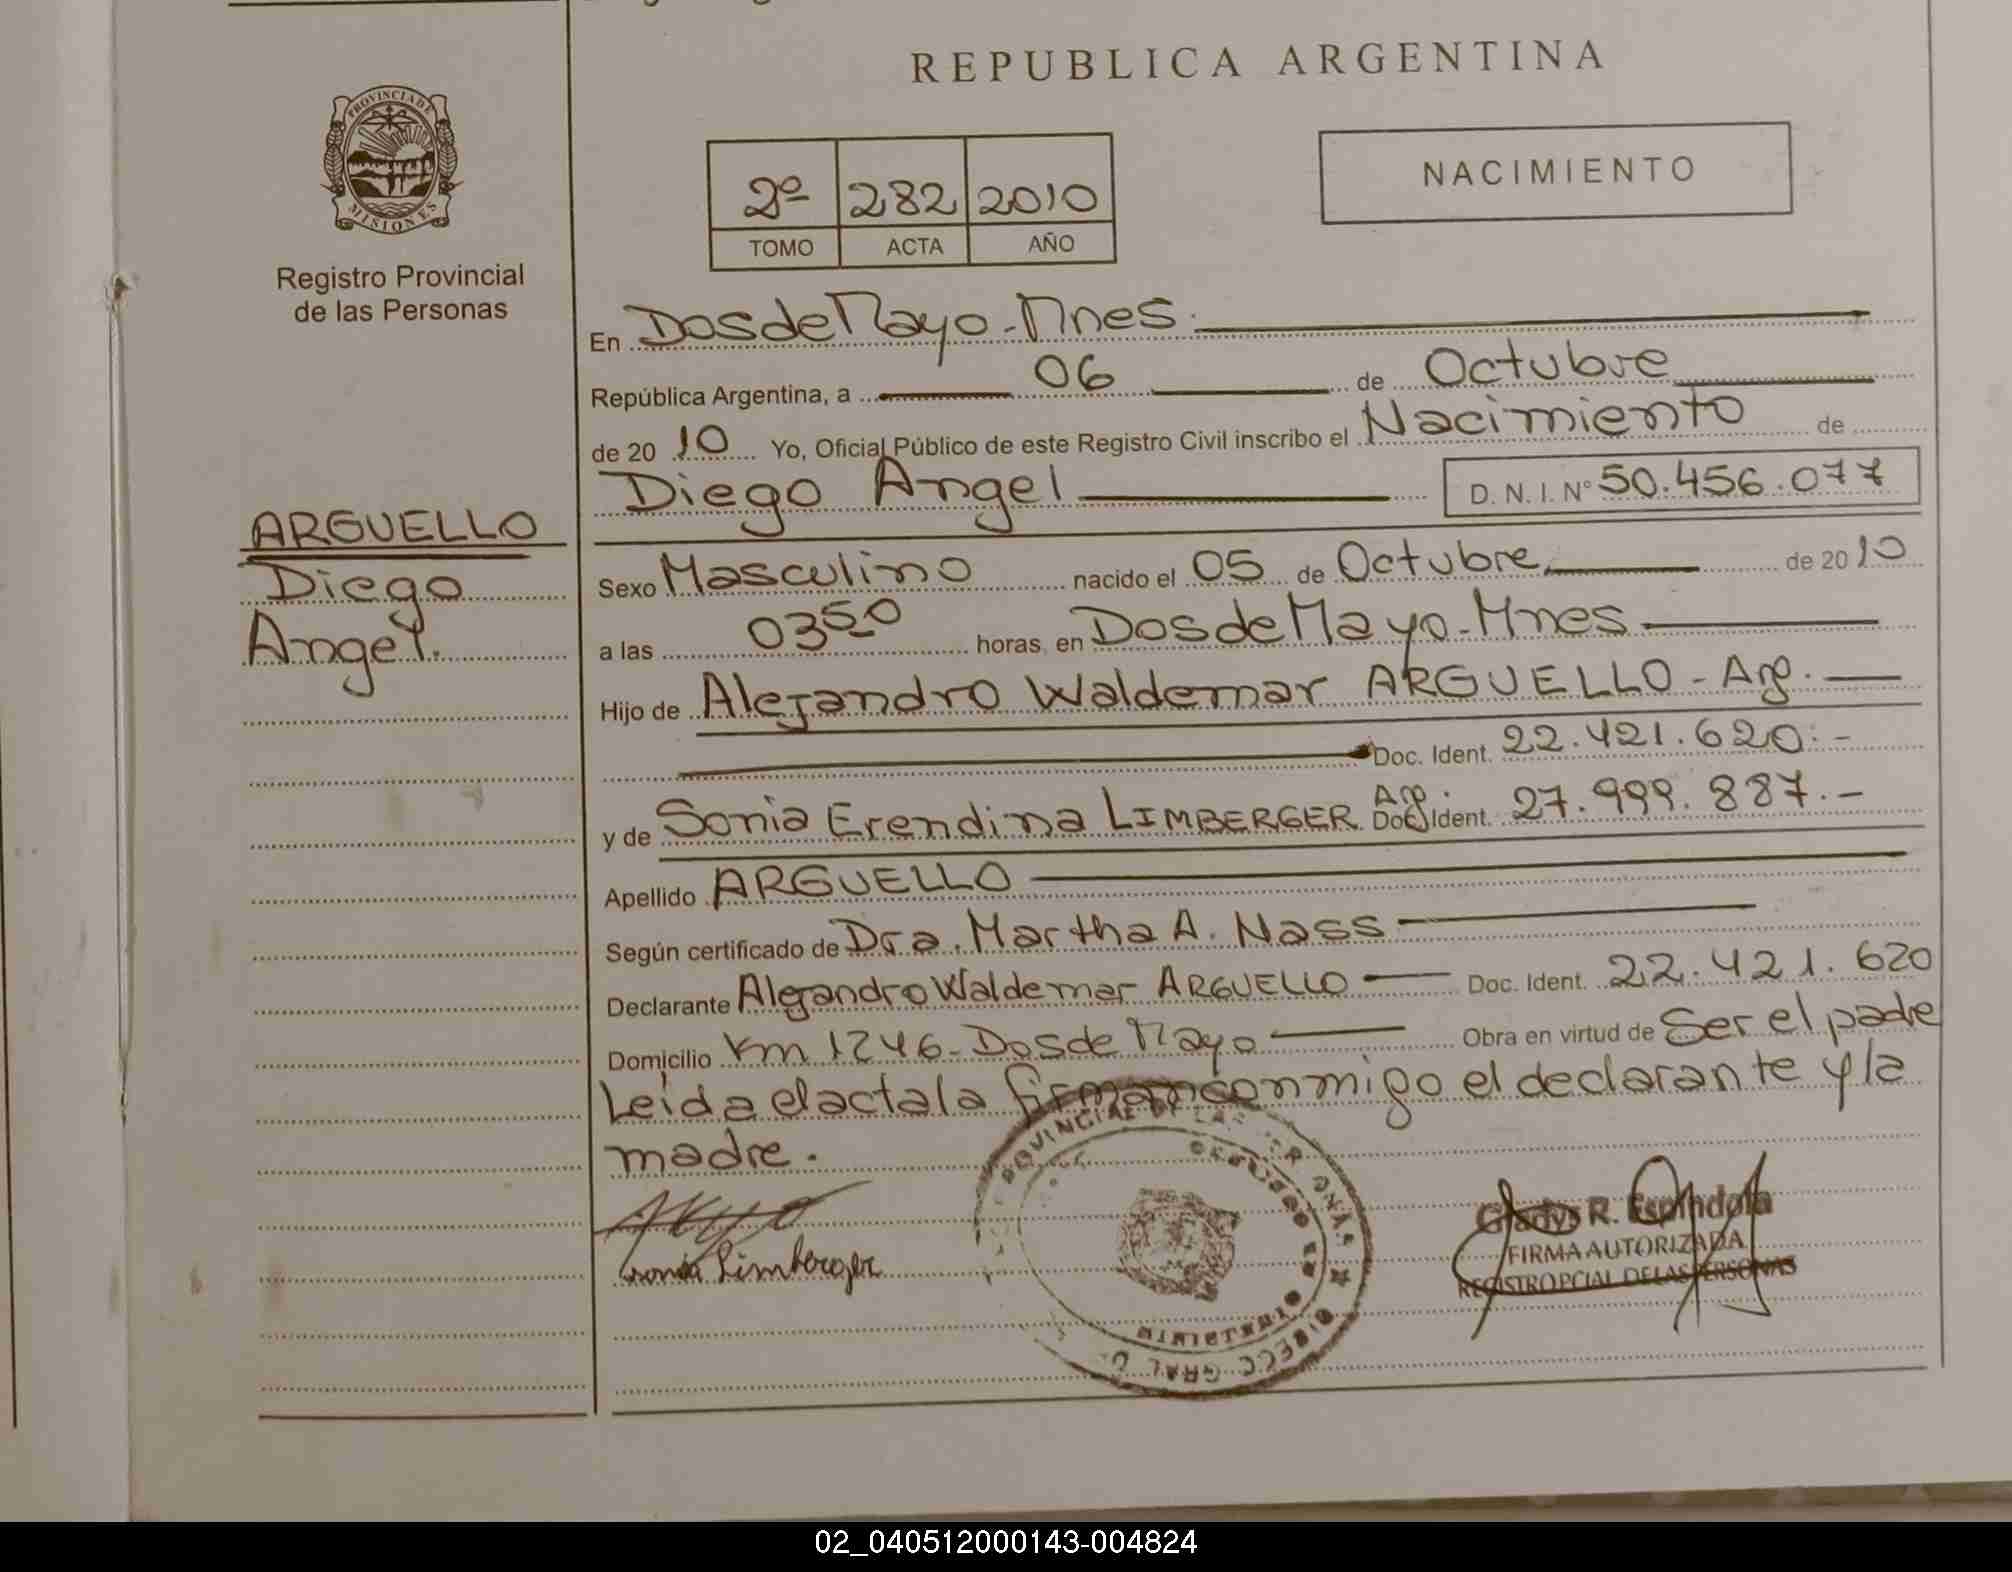 REPUBLICA ARGENTINA
PROVINCIA DE
MISIONES
Registro Provincial
de las Personas
2º 282 2010
TOMO ACTA AÑO
NACIMIENTO
ARGUELLO
Diego
Angel.
En Dos de Mayo - Mnes.
República Argentina, a 06 de Octubre
de 2010 Yo, Oficial Público de este Registro Civil inscribo el Nacimiento de
Diego Angel D. N. I. Nº 50.456.077
Sexo Masculino nacido el 05 de Octubre de 2010
a las 0350 horas en Dos de Mayo - Mnes
Hijo de Alejandro Waldemar ARGUELLO - Arg.
Doc. Ident. 22.421.620.-
y de Sonia Erendina LIMBERGER Arg. Doc. Ident. 27.999.887.-
Apellido ARGUELLO
Según certificado de Dra. Martha A. Nass
Declarante Alejandro Waldemar ARGUELLO Doc. Ident. 22.421.620
Domicilio Km 1246 - Dos de Mayo Obra en virtud de Ser el padre
Leida el acta la firman conmigo el declarante y la
madre.
Sonia Limberger
Gladys R. Espindola
FIRMA AUTORIZADA
REGISTRO PCIAL DE LAS PERSONAS
02_040512000143-004824